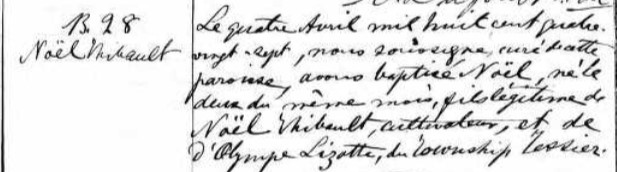 B. 28
Noël Thibault
Le quatre Avril mil huit cent quatre-
vingt-sept, nous soussigné, curé de cette
paroisse, avons baptisé Noël, né le
deux du même mois, fils légitime de
Noël Thibault, cultivateur, et de
d'Olympe Lizotte, du township Tessier.